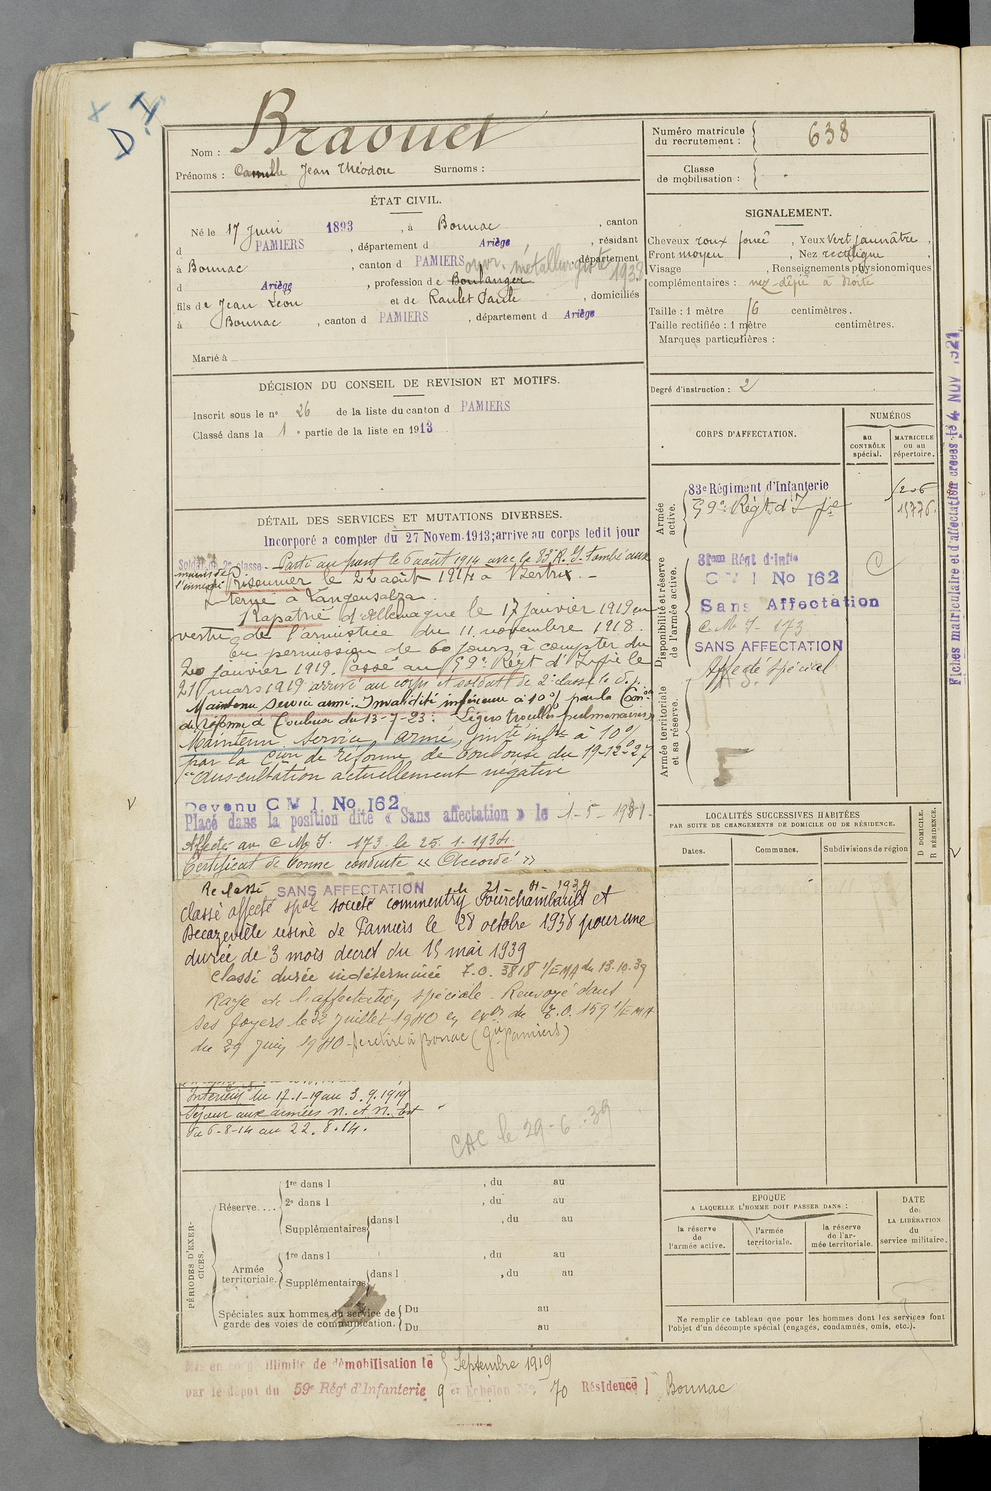 D
Nom : Braouet
Prénoms : Camille Jean Théodore Surnoms :
Numéro matricule du recrutement : 638
Classe de mobilisation :
ÉTAT CIVIL.
Né le 17 Juin 1893, à Bonnac, canton
d PAMIERS, département d Ariège, résidant
à Bonnac, canton d PAMIERS, département
d Ariège, profession de Boulanger
ouvr. métallurgiste 1938
fils de Jean Léon et de Raulet Paule, domiciliés
à Bonnac, canton d PAMIERS, département d Ariège
Marié à
SIGNALEMENT.
Cheveux roux foncé, Yeux vert jaunâtre,
Front moyen, Nez rectiligne,
Visage, Renseignements physionomiques
complémentaires : nez dévié à droite
Taille : 1 mètre 6 centimètres.
Taille rectifiée : 1 mètre centimètres.
Marques particulières :
Degré d'instruction : 2
DÉCISION DU CONSEIL DE REVISION ET MOTIFS.
Inscrit sous le n° 26 de la liste du canton d PAMIERS
Classé dans la 1e partie de la liste en 1913
DÉTAIL DES SERVICES ET MUTATIONS DIVERSES.
Incorporé a compter du 27 Novem. 1913; arrive au corps ledit jour
Soldat de 2e classe - Parti au front le 6 août 1914 avec le 83e R.I. Tombé aux
mains de l'ennemi Prisonnier le 22 août 1914 à Bertrix. -
Interné à Langensalza.
Rapatrié d'Allemagne le 17 janvier 1919 en
vertu de l'armistice du 11 novembre 1918.
En permission de 60 jours à compter du
20 janvier 1919. Passé au 59e Régt d'Infie le
21 mars 1919 arrivé au corps et soldat de 2e classe le d. j.
Maintenu service armé. Invalidité inférieure à 10% par la Con
de réforme de Toulouse du 13-7-23 : Légers troubles pulmonaires
Maintenu service armé, invté infre à 10%
par la Cion de réforme de Toulouse du 19-12-27
"Auscultation actuellement négative
Devenu C M I No 162
Placé dans la position dite « Sans affectation » le 1-5-1931
Affecté au C M I. 173 le 25.1-1934
Certificat de bonne conduite « Accordé »
Reclassé SANS AFFECTATION le 21 - 1934
classé affecté spal société commentry Fourchambault et
Decazeville usine de Pamiers le 28 octobre 1938 pour une
durée de 3 mois decret du 15 mai 1939
Classé durée indéterminée T.O. 3818 1/EMA du 13.10.39
Rayé de l'affectation spéciale. Renvoyé dans
ses foyers le 22 juillet 1940 en exon de T.O. 159 1/EMA
du 29 juin 1940 - se retire à Bonnac (Gie Pamiers)
Intérieur du 17-1-19 au 3.9.1919
Séjour aux armées N. et N. Est
du 6-8-14 au 22.8.14.
CAC le 29-6-39
CORPS D'AFFECTATION.
NUMÉROS
au CONTRÔLE spécial.
MATRICULE ou au répertoire.
Armée active.
83e Régiment d'Infanterie
59e Régt d'Infie
Disponibilité et réserve de l'armée active.
C M I No 162
Sans Affectation
C M I- 173
SANS AFFECTATION
Affecté spécial
Armée territoriale et sa réserve.
LOCALITÉS SUCCESSIVES HABITÉES
PAR SUITE DE CHANGEMENTS DE DOMICILE OU DE RÉSIDENCE.
Dates. Communes. Subdivisions de région
D DOMICILE.
R RÉSIDENCE.
PÉRIODES D'EXERCICES.
Réserve....
1re dans l , du au
2e dans l , du au
Supplémentaires dans l , du au
Armée territoriale.
1re dans l , du au
Supplémentaires dans l , du au
Spéciales aux hommes du service de garde des voies de communication.
Du au
Du au
EPOQUE
A LAQUELLE L'HOMME DOIT PASSER DANS :
la réserve de l'armée active.
l'armée territoriale.
la réserve de l'armée territoriale.
DATE de LA LIBÉRATION du service militaire.
Ne remplir ce tableau que pour les hommes dont les services font
l'objet d'un décompte spécial (engagés, condamnés, omis, etc.).
Mis en congé illimité de démobilisation le 5 Septembre 1919
par le dépôt du 59e Régt d'Infanterie 9 em Echelon No 70 Résidence Bonnac
Fiches matriculaire et d'affectation créées le 4 NOV 1921